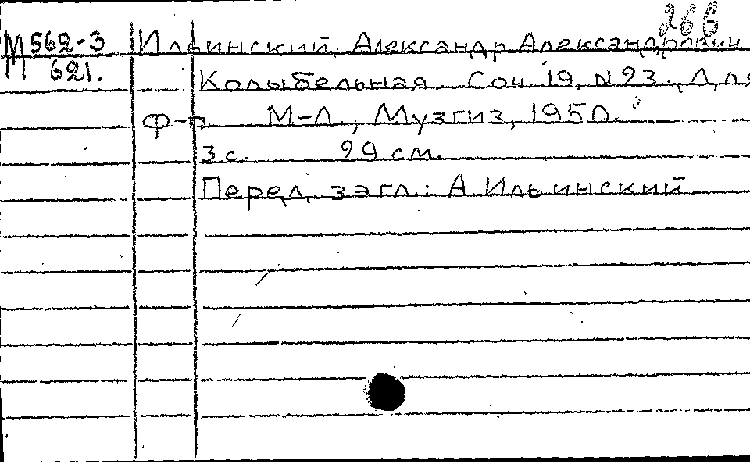 26 в
М 562-3 Ильинский, Александр Александрович
621. Колыбельная. Соч. 19, N 23. Для
ф-п. М-Л., Музгиз, 1950.
3 с. 29 см.
Перед загл.: А. Ильинский